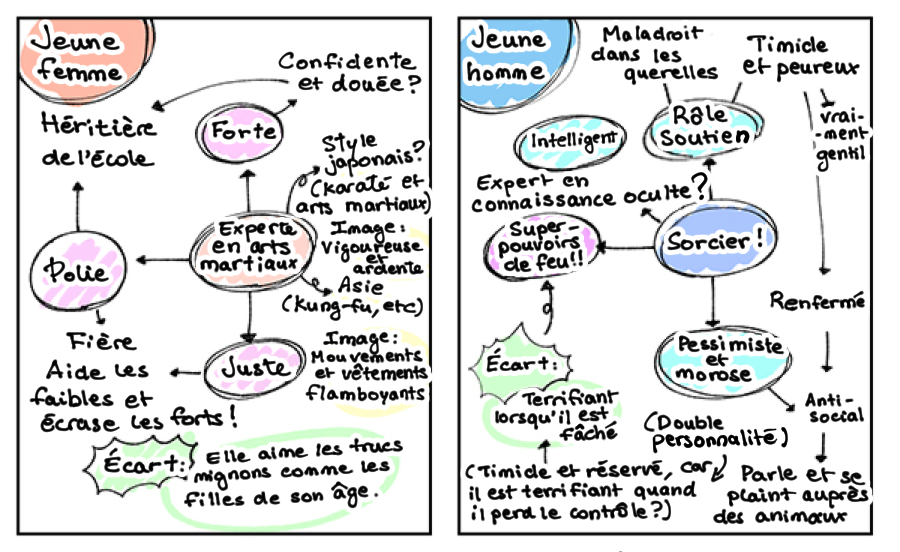 Jeune
femme
Confidente
et douée?
Héritière
de l'école
Forte
Style
japonais?
(karaté et
arts martiaux)
Experte
en arts
martiaux
Image:
Vigoureuse
et
ardente
Polie
Asie
(kung-fu, etc)
Fière
Juste
Image:
Mouvements
et vêtements
flamboyants
Aide les
faibles et
écrase les forts!
Écart:
Elle aime les trucs
mignons comme les
filles de son âge.
Jeune
homme
Maladroit
dans les
querelles
Timide
et peureux
Rôle
Soutien
vrai-
-ment
gentil
Intelligent
Expert en
connaissance oculte?
Super-
pouvoirs
de feu!!
Sorcier!
Renfermé
Écart:
Pessimiste
et
morose
Terrifiant
lorsqu'il est
fâché
Anti-
social
(Double
personnalité)
(Timide et réservé, car
il est terrifiant quand
il perd le contrôle?)
Parle et se
plaint auprès
des animaux